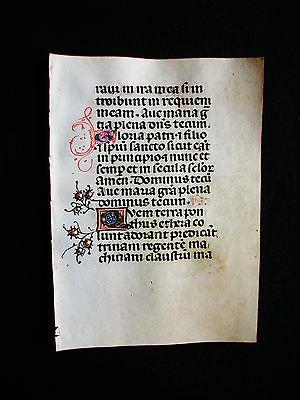 raui in ira mea si in
troibunt in requiem
meam. aue maria g̃
tia plena dñs tecum.
Gloria patri ⁊ filio
⁊ spiri sancto sicut eat̃
in principio ⁊ nunc et
semp et in secula seclor
amen Dominus tecũ
Aue maria gr̃a plena
dominus tecum. ps.
Quem terra pon
thus ethera co
lunt adorant predicãt
trinam regente ma
chinam claustru ma